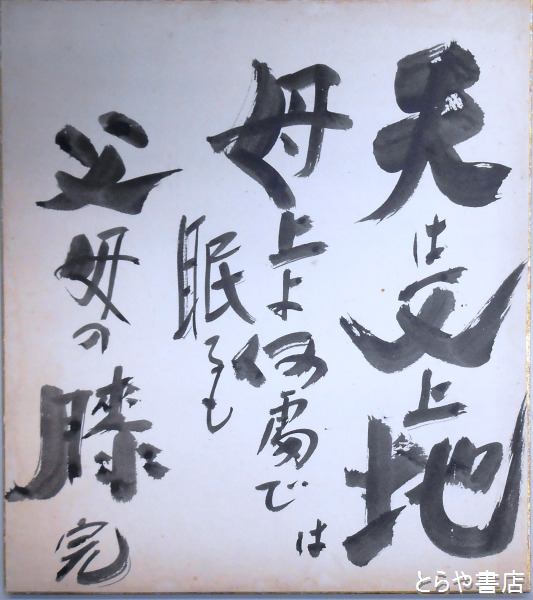 天は父上地
は
母上よ何處で
眠るも
父母の膝
完
とらや書店